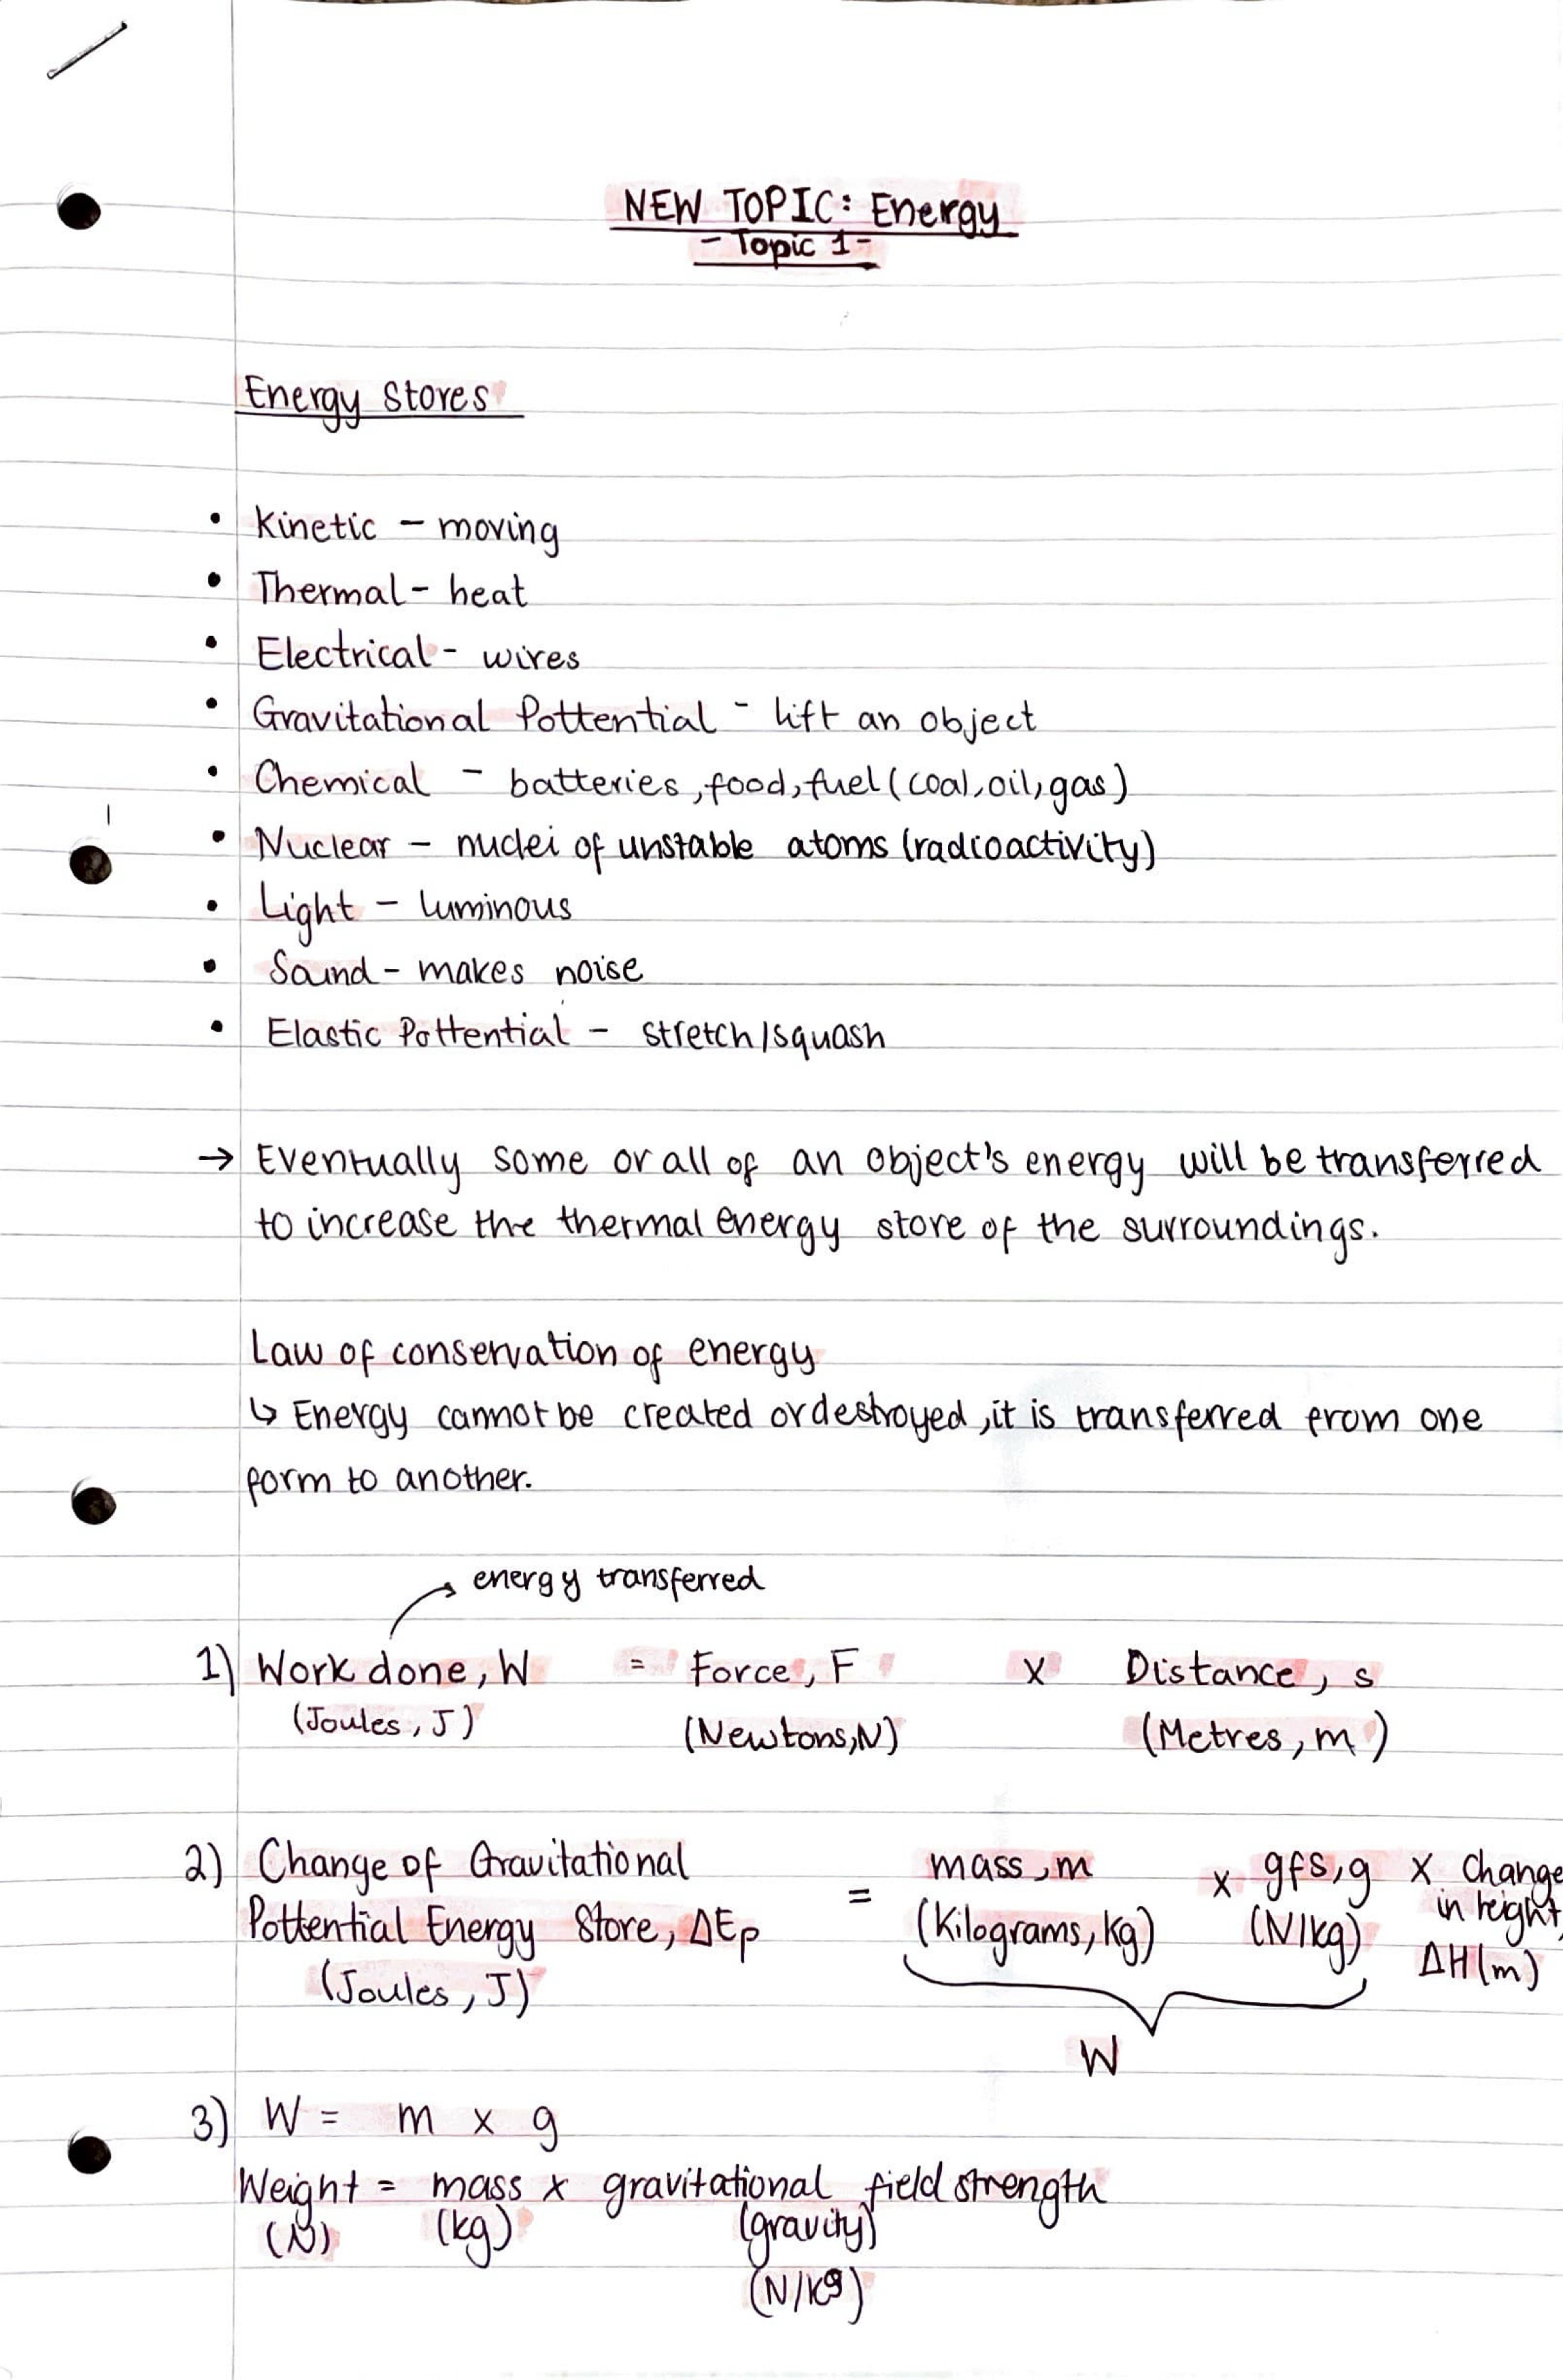 NEW TOPIC: Energy
- Topic 1-
Energy Stores
• Kinetic - moving
• Thermal - heat
• Electrical - wires
• Gravitational Pottential - lift an object
• Chemical - batteries, food, fuel (coal, oil, gas)
• Nuclear - nuclei of unstable atoms (radioactivity)
• Light - luminous
• Sound - makes noise
• Elastic Pottential - stretch/squash
→ Eventually some or all of an object's energy will be transferred
to increase the thermal energy store of the surroundings.
Law of conservation of energy
↳ Energy cannot be created or destroyed, it is transferred from one
form to another.
energy transferred
1) Work done, W = Force, F x Distance, s
(Joules, J) (Newtons, N) (Metres, m)
2) Change of Gravitational
Pottential Energy Store, ΔEp
(Joules, J)
= mass, m x gfs, g x change
in height,
(Kilograms, kg) (N/kg) ΔH (m)
W
3) W = m x g
Weight = mass x gravitational field strength
(N) (kg) (gravity)
(N/kg)